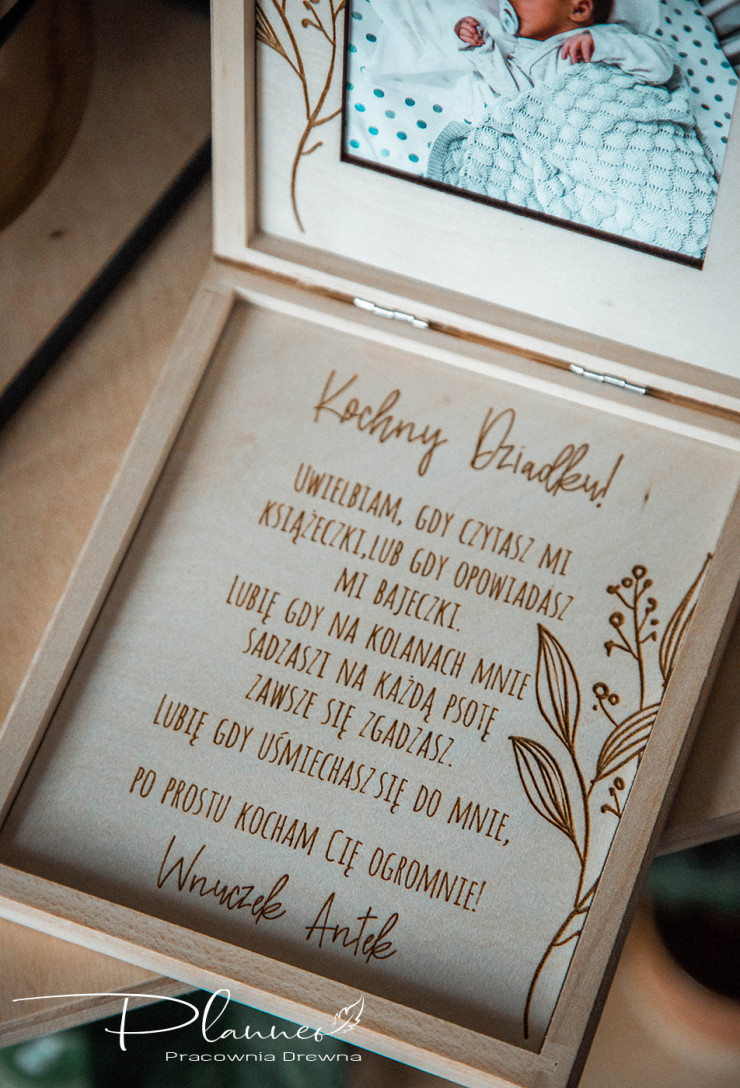 Kochny Dziadku!
UWIELBIAM, GDY CZYTASZ MI
KSIĄŻECZKI,LUB GDY OPOWIADASZ
MI BAJECZKI.
LUBIĘ GDY NA KOLANACH MNIE
SADZASZI NA KAŻDĄ PSOTĘ
ZAWSZE SIĘ ZGADZASZ.
LUBIĘ GDY UŚMIECHASZ SIĘ DO MNIE,
PO PROSTU KOCHAM CIĘ OGROMNIE!
Wnuczek Antek
Planneo
Pracownia Drewna